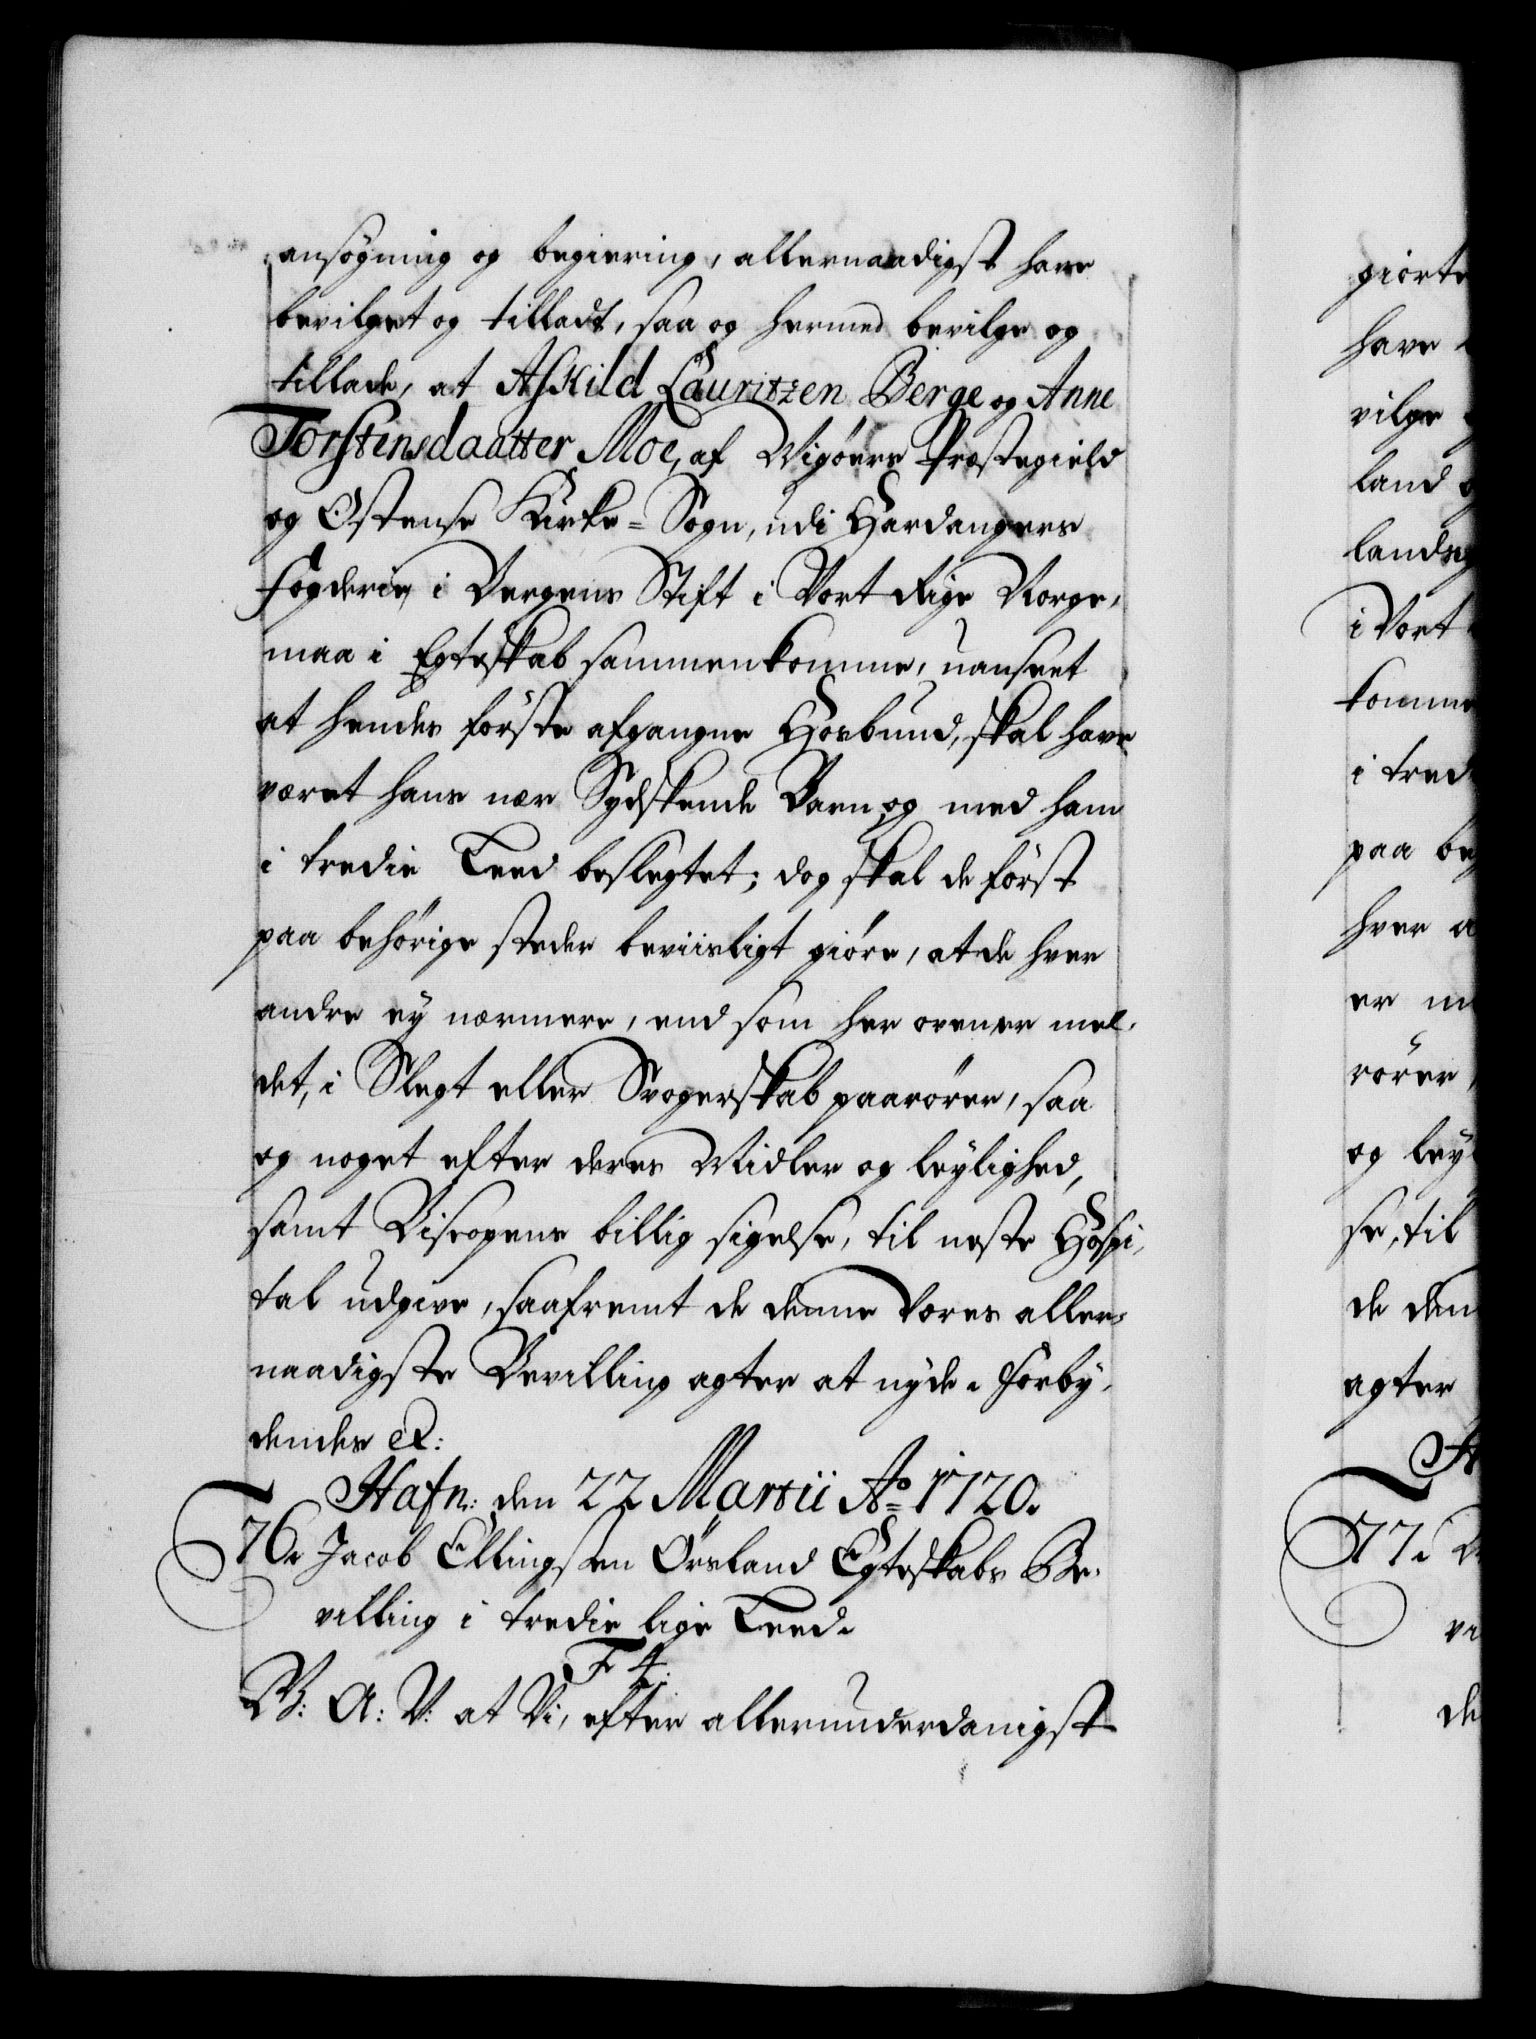 ansøgning og begiering, allernaadigst have
bevilget og tilladt, saa og hermed bevilge og
tillade, at Askild Lauritzen Berge og Anne
Torstensdaatter Moe, af Wigöers Præstegield
og Ostense Kirke-Sogn, udi Hardangers
Fogderie i Bergens Stift i Vort Rige Norge,
maa i Egteskab sammenkomme, uanseet
at hendes første afgangne Hosbund, skal have
været hans nær Sydskende Barn og med ham
i tredie Leed beslegtet; dog skal de først
paa behørige steder beviisligt giøre, at de hver
andre ey nærmere, end som her oven er mel-
det, i Slegt eller Svogerskab paarører, saa
og noget efter deres Midler og leylighed,
samt Biscopens billig sigelse, til neste Hospi-
tal udgive, saafremt de denne Vores aller-
naadigste Bevilling agter at nyde. Forby-
dendes etc:
Hafn: den 22 Martii Ao 1720.
76. Jacob Ellingsen Örsland Egteskabs Be-
villing i tredie lige Leed.
F 4.
V: A: V: at Vi, efter allerunderdanigst
giorte
have
vilge
land
i Vort
komme
i tred
paa be
hver a
er
rører
og ley
se, til
de den
agter
77.
vi
de